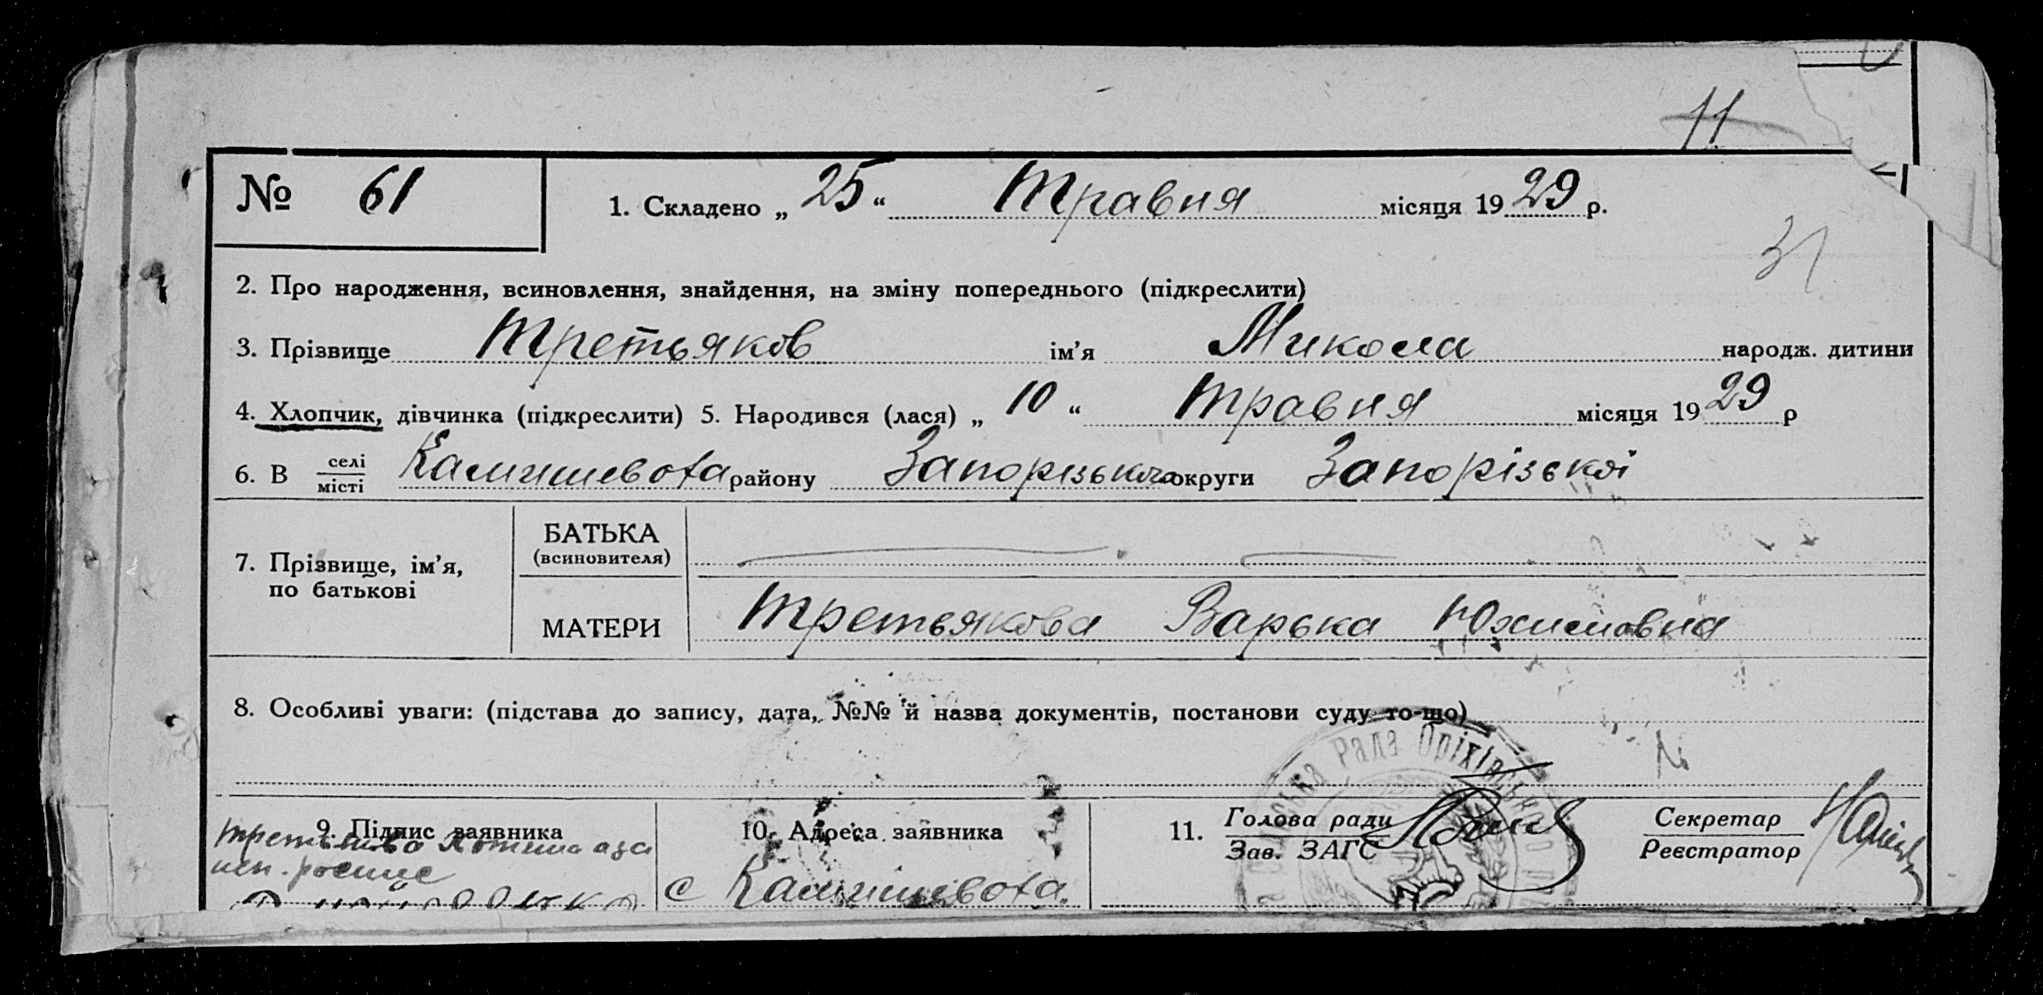 11
№ 61 1. Складено „ 25 “ Травня місяця 19 29 р.
31
2. Про народження, всиновлення, знайдення, на зміну попереднього (підкреслити)
3. Прізвище Третьяков ім’я Микола народж. дитини
4. Хлопчик, дівчинка (підкреслити) 5. Народився (лася) „ 10 “ Травня місяця 19 29 р
6. В селі місті Камишеваха району Запорізького округи Запорізької
7. Прізвище, ім’я, по батькові
БАТЬКА
(всиновителя)
МАТЕРИ Третьякова Варька Юхимовна
8. Особливі уваги: (підстава до запису, дата, №№ й назва документів, постанови суду то-що)
Рада Оріхівського
9. Підпис заявника
10. Адреса заявника
с Камишеваха.
11. Голова ради
Зав. ЗАГС
Секретар
Реєстратор